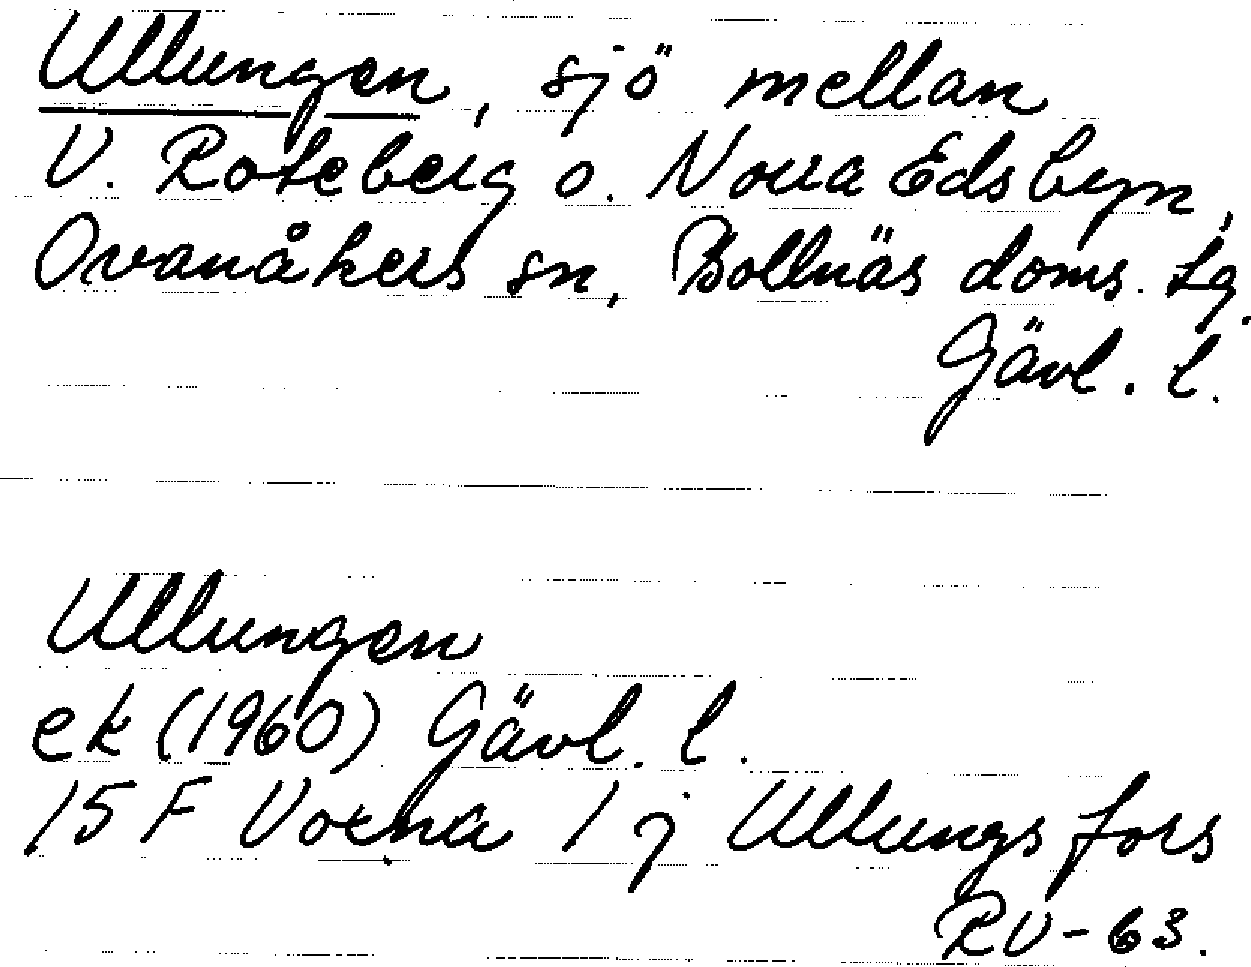 Ullungen, sjö mellan
V. Roteberg o. Norra Edsbyn,
Ovanåkers sn, Bollnäs doms. lg.
Gävl. l.
Ullungen
ek (1960) Gävl. l.
15 F Voxna 1 j Ullungsfors
RV-63.